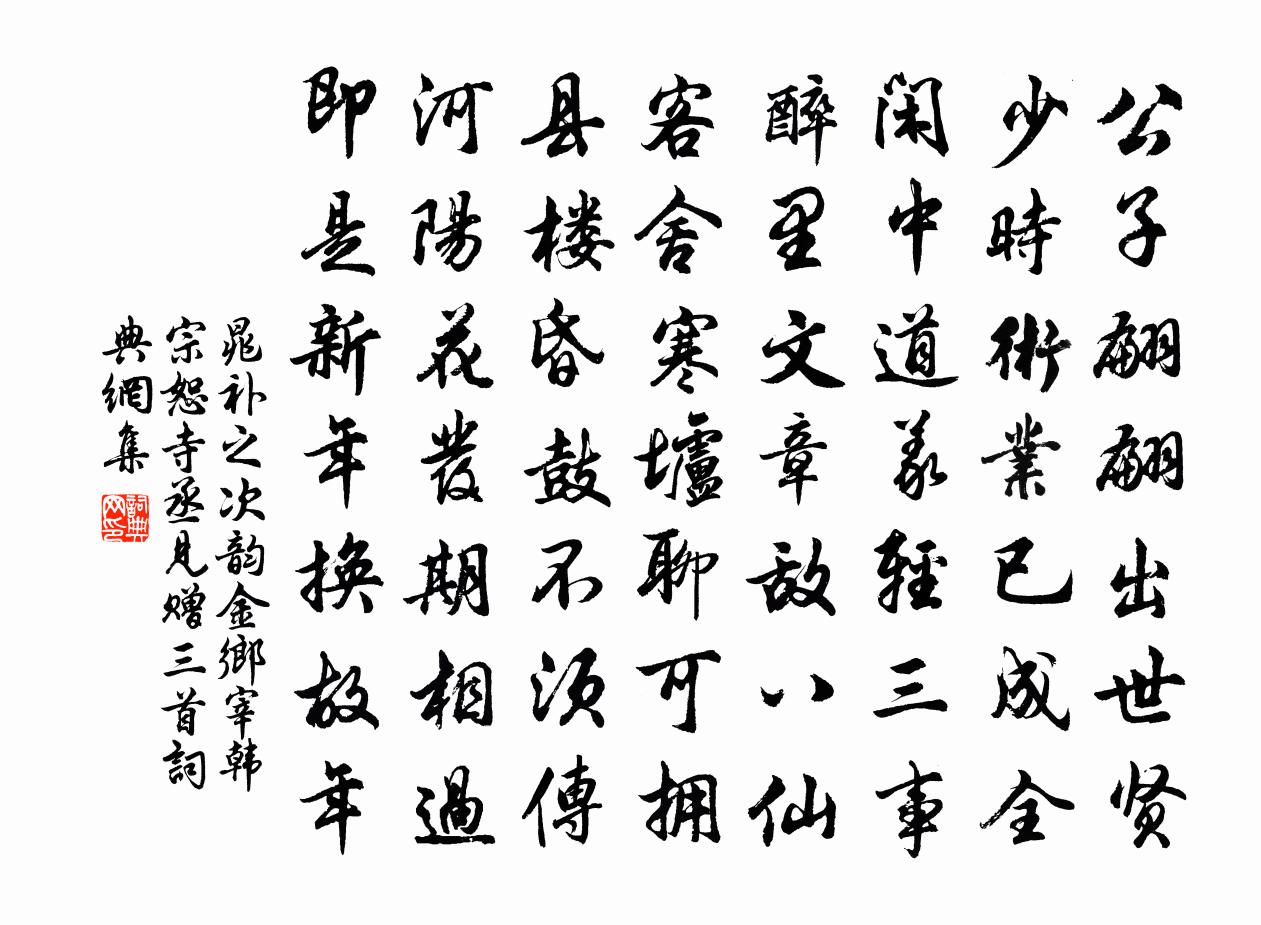 公子翩翩出世贤
少時術業已成全
闲中道義輕三事
醉里文章敌八仙
客舍寒壚聊可拥
县楼昏鼓不须傳
河陽花發期相過
即是新年换故年
晁补之次韵金鄉宰韩
宗恕寺丞見赠三首詞
典網集
詞典网印